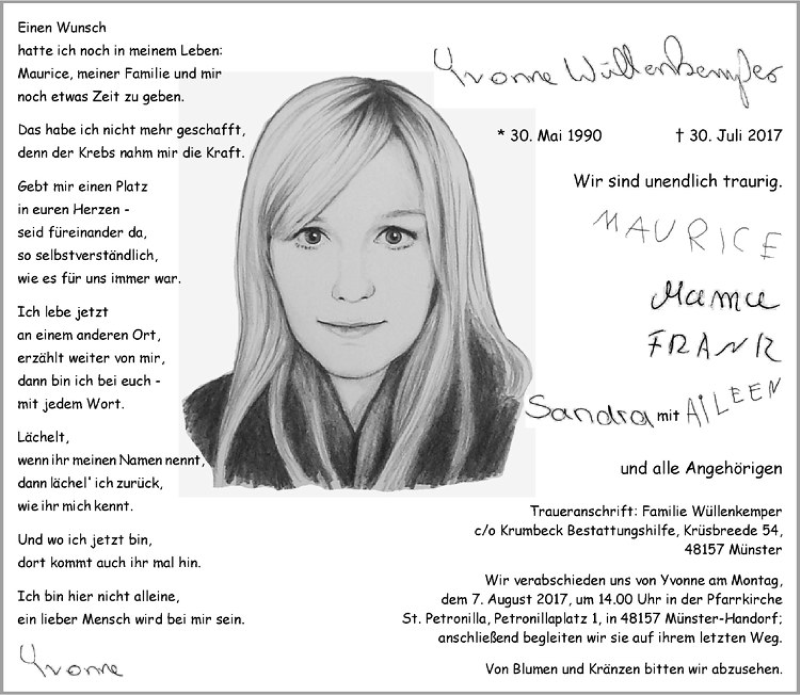 Einen Wunsch
hatte ich noch in meinem Leben:
Maurice, meiner Familie und mir
noch etwas Zeit zu geben.
Das habe ich nicht mehr geschafft,
denn der Krebs nahm mir die Kraft.
Gebt mir einen Platz
in euren Herzen -
seid füreinander da,
so selbstverständlich,
wie es für uns immer war.
Ich lebe jetzt
an einem anderen Ort,
erzählt weiter von mir,
dann bin ich bei euch -
mit jedem Wort.
Lächelt,
wenn ihr meinen Namen nennt,
dann lächel' ich zurück,
wie ihr mich kennt.
Und wo ich jetzt bin,
dort kommt auch ihr mal hin.
Ich bin hier nicht alleine,
ein lieber Mensch wird bei mir sein.
Yvonne
Yvonne Wüllenkemper
* 30. Mai 1990 † 30. Juli 2017
Wir sind unendlich traurig.
MAURICE
Mama
FRANK
Sandra mit AILEEN
und alle Angehörigen
Traueranschrift: Familie Wüllenkemper
c/o Krumbeck Bestattungshilfe, Krüsbreede 54,
48157 Münster
Wir verabschieden uns von Yvonne am Montag,
dem 7. August 2017, um 14.00 Uhr in der Pfarrkirche
St. Petronilla, Petronillaplatz 1, in 48157 Münster-Handorf;
anschließend begleiten wir sie auf ihrem letzten Weg.
Von Blumen und Kränzen bitten wir abzusehen.